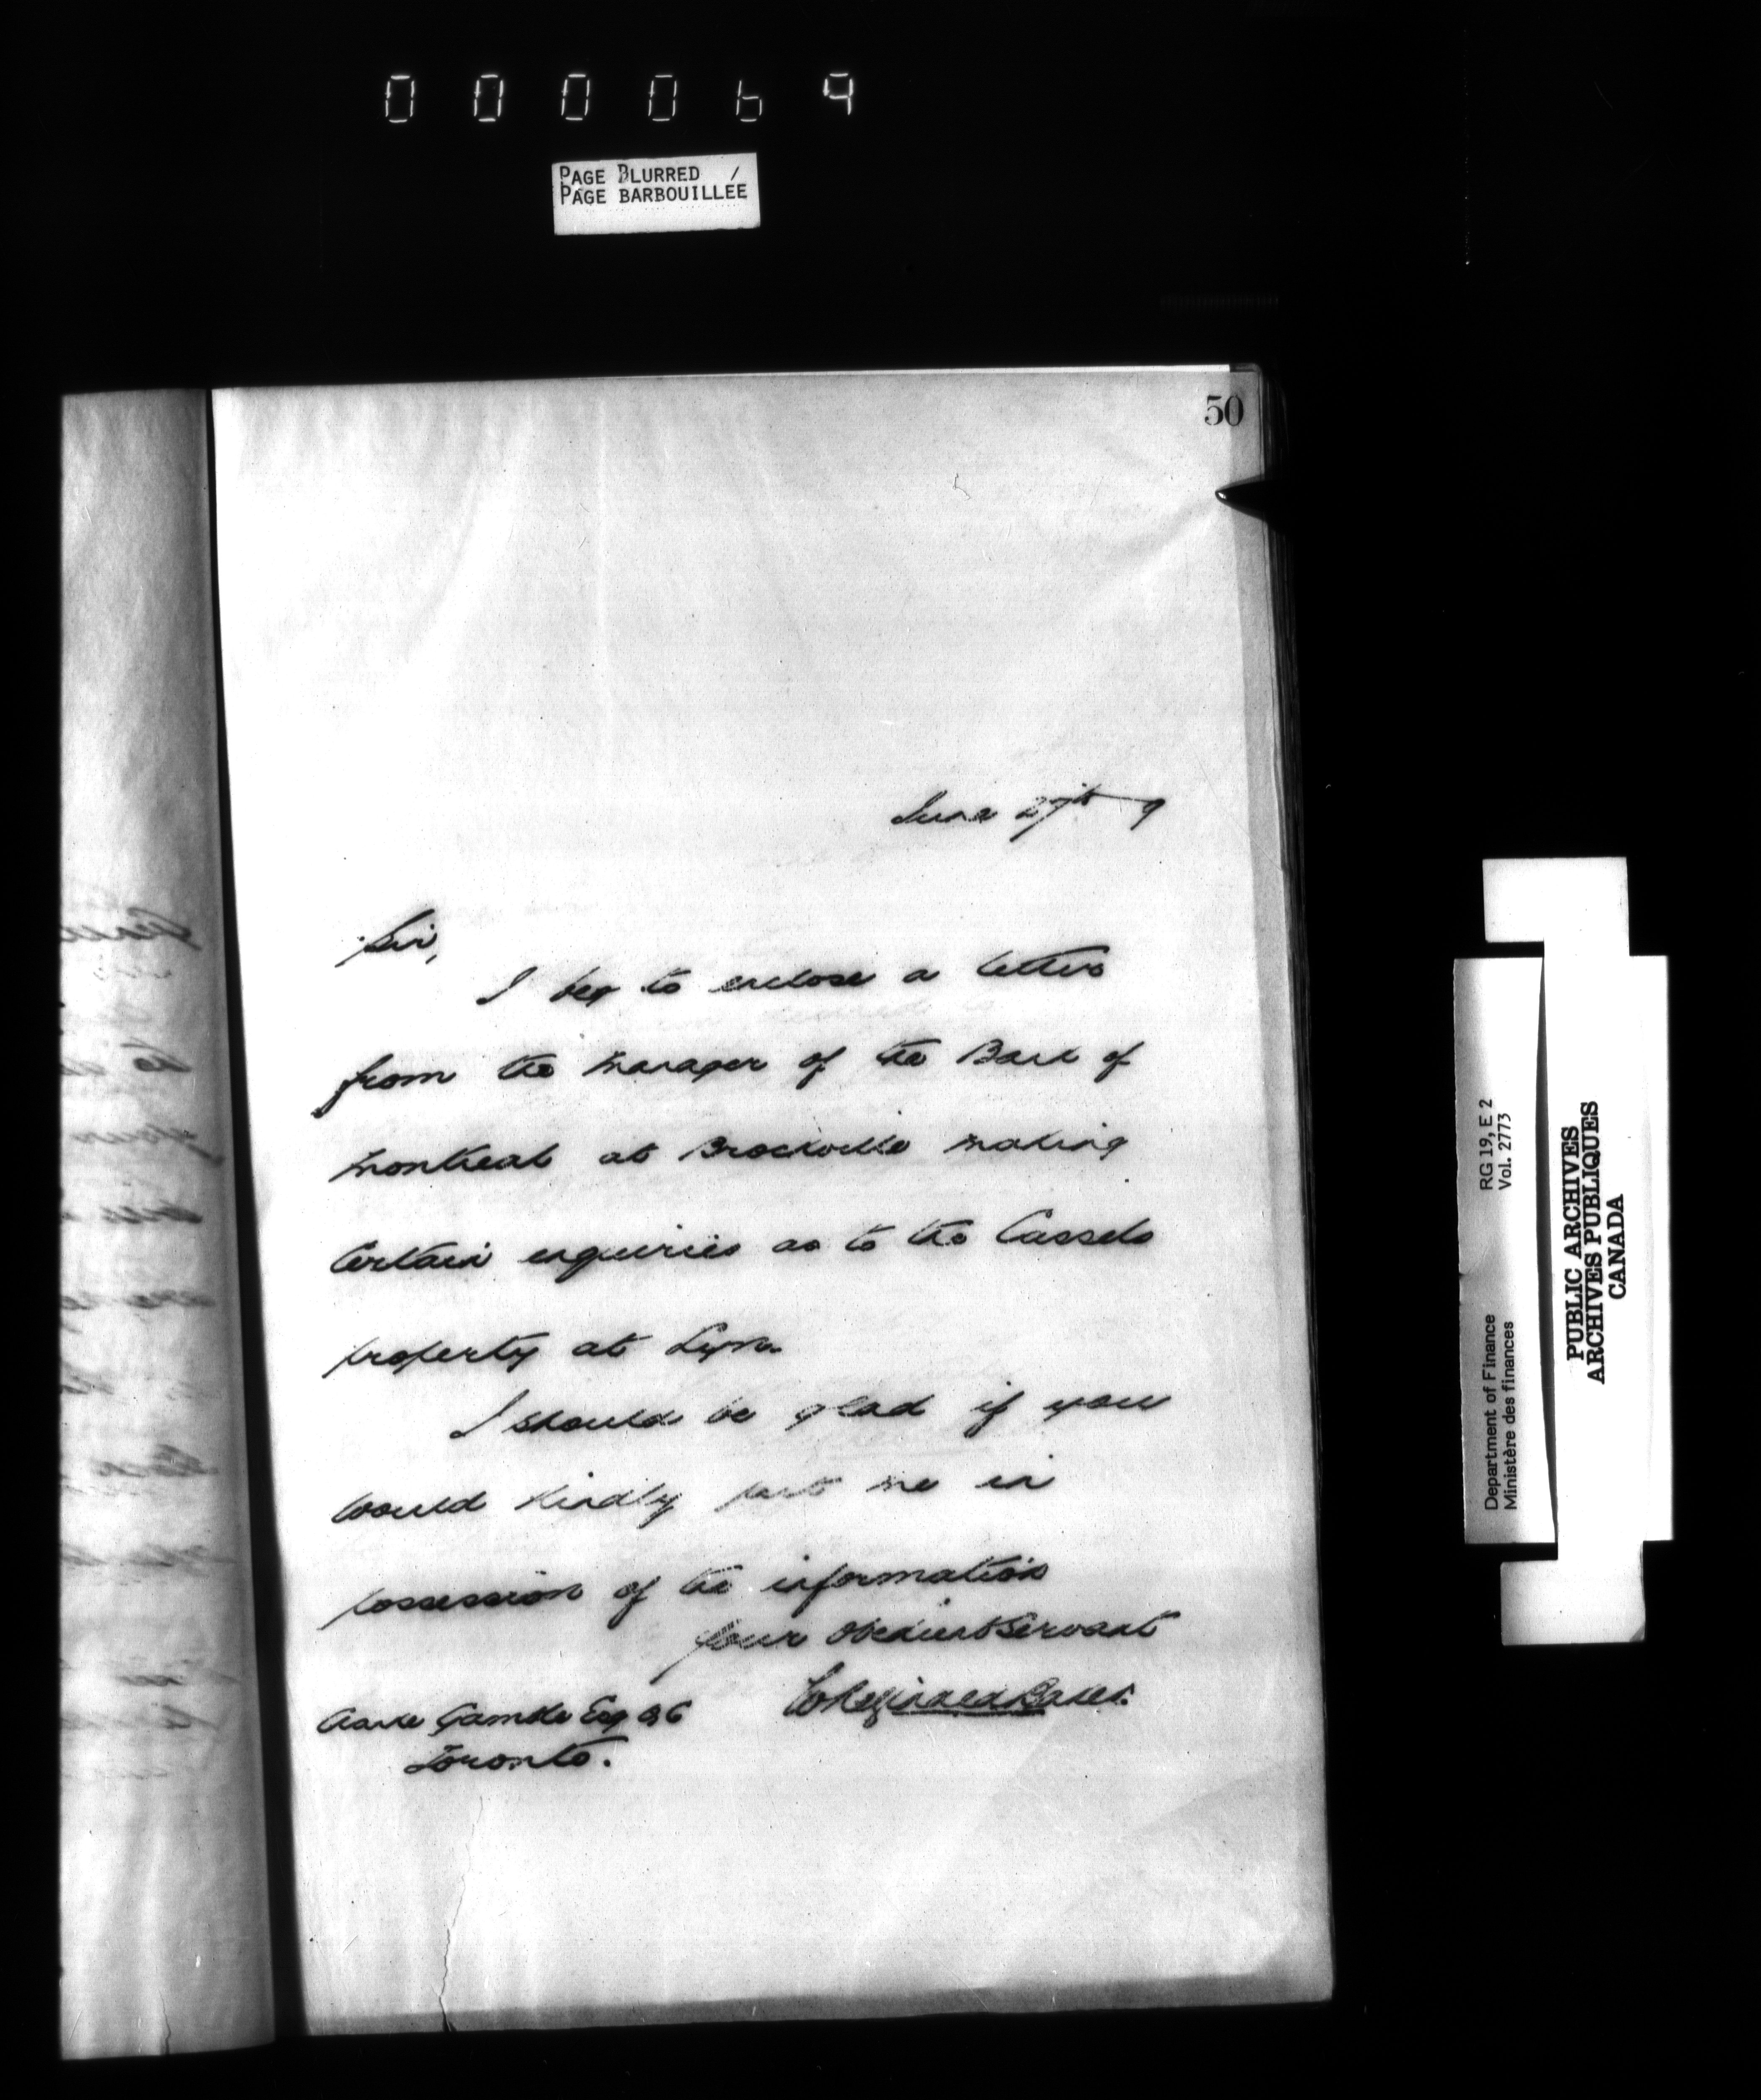 000069
PAGE BLURRED /
PAGE BARBOUILLÉE
50
June 27th 9
Sir,
I beg to enclose a letter
from the Manager of the Bank of
Montreal at Brockville making
Certain enquiries as to the Cassels
property at Lyn.
I should be glad if you
would kindly put me in
possession of the information
Your Obedient Servant
Baker
Clarke Gamble Esq QC
Toronto.
RG 19, E 2
Vol. 2773
Department of Finance
Ministère des finances
PUBLIC ARCHIVES
ARCHIVES PUBLIQUES
CANADA